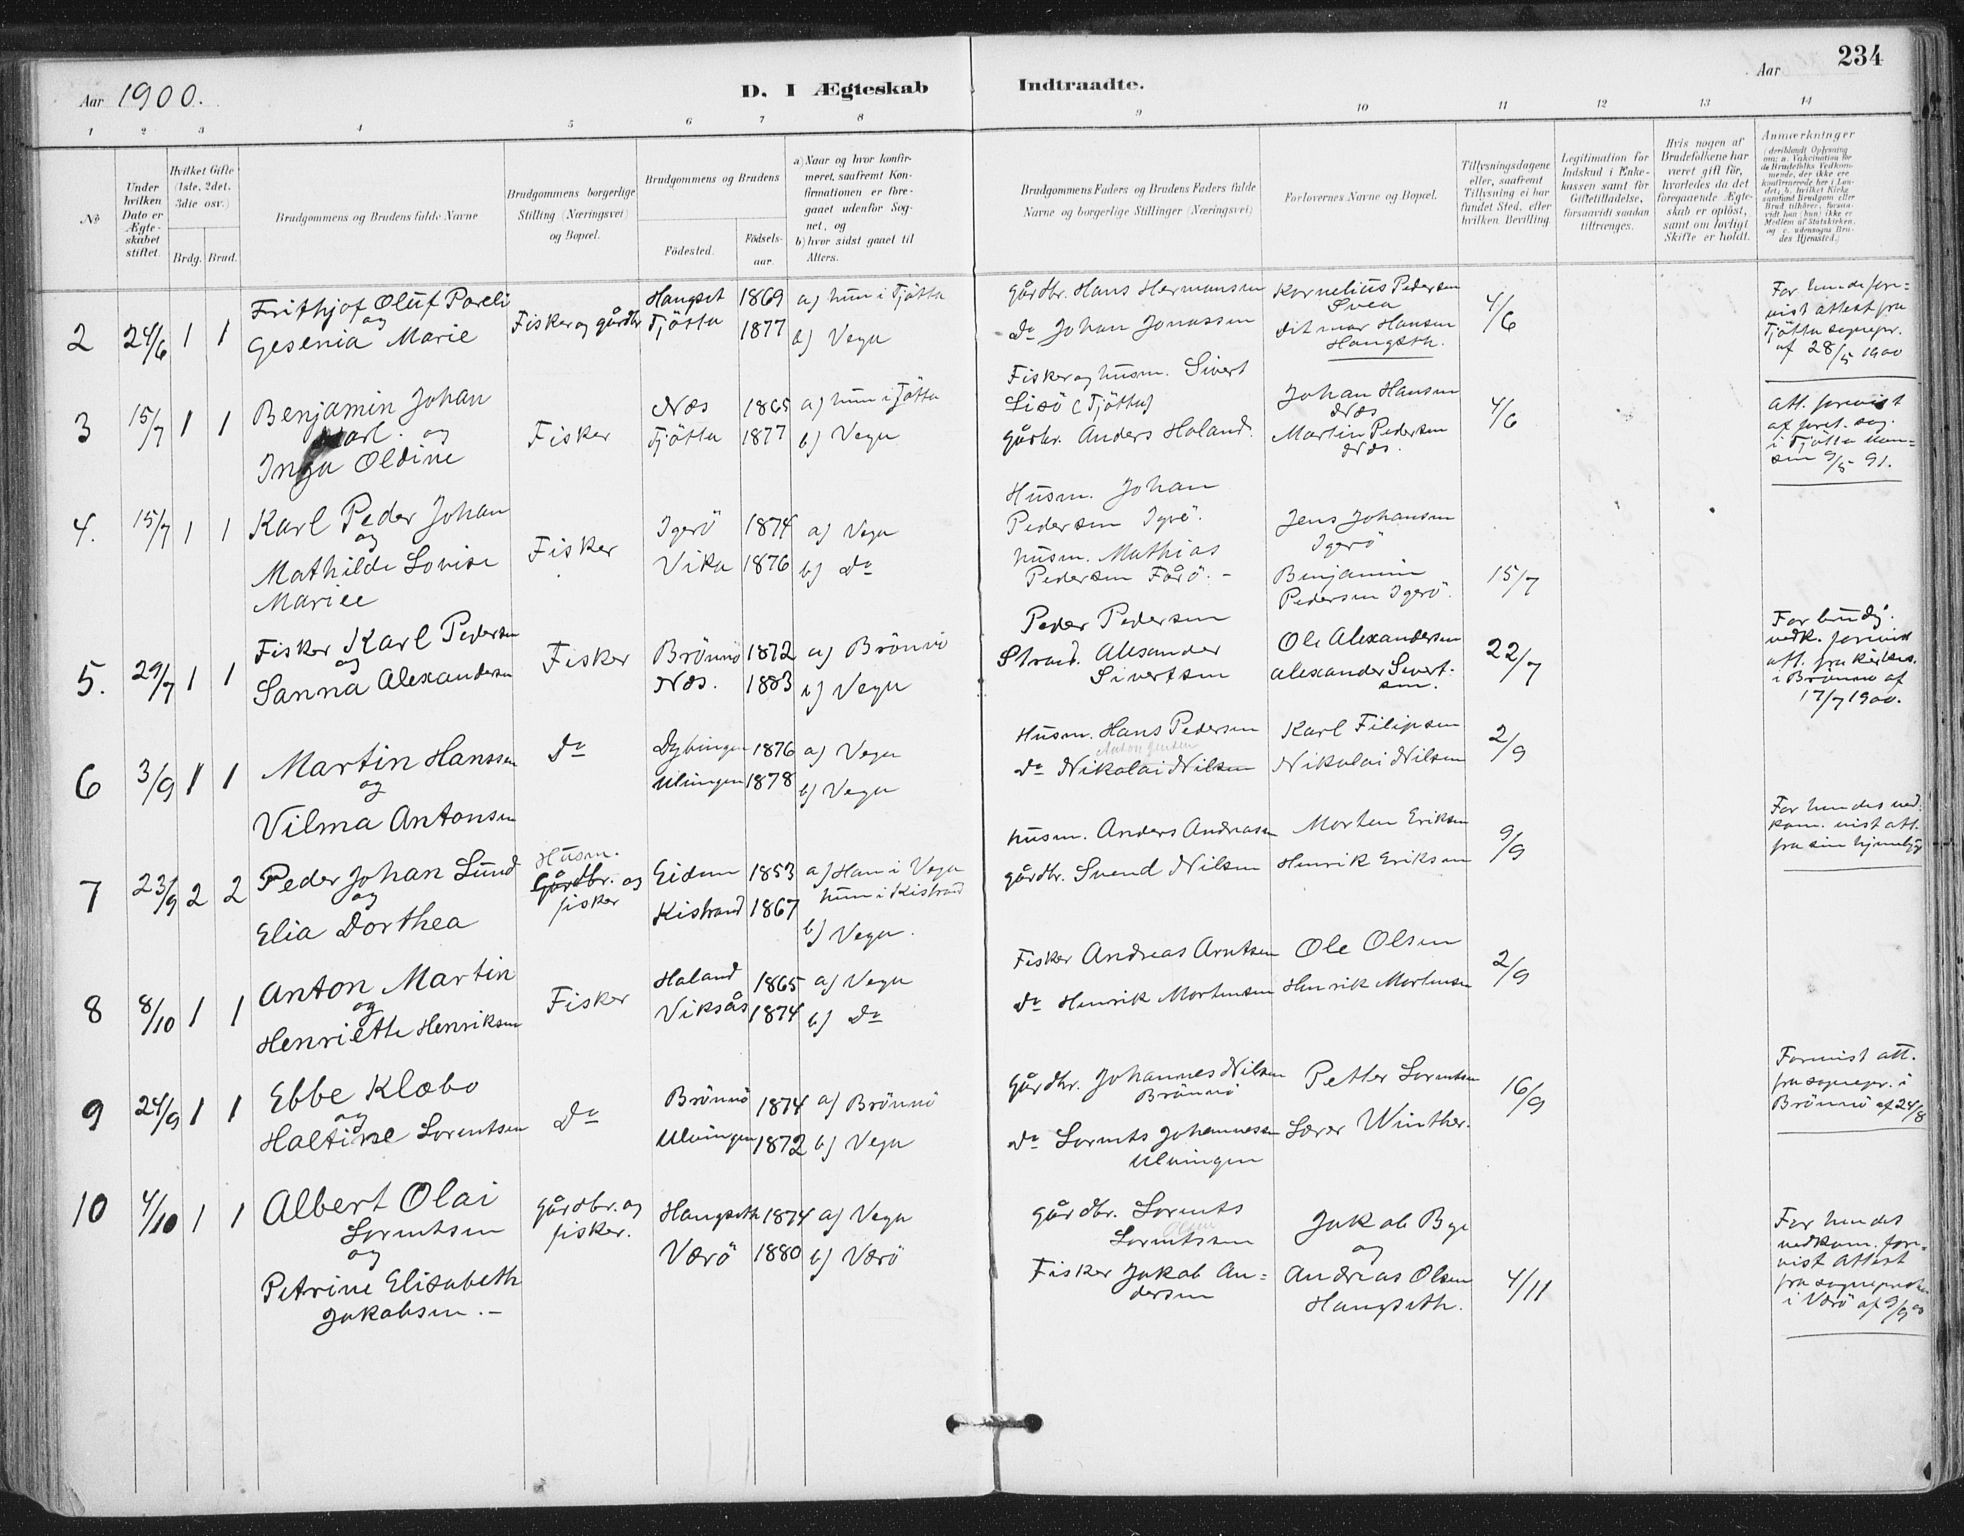 234
Aar 1900.
D. I Ægteskab Indtraadte.
Aar
1 2 3 4 5 6 7 8 9 10 11 12 13 14
No
Under hvilken Dato er Ægteskabet stiftet.
Hvilket Gifte (1ste, 2det, 3die osv.)
Brdg. Brud.
Brudgommens og Brudens fulde Navne
Brudgommens borgerlige Stilling (Næringsvei) og Bopæl.
Brudgommens og Brudens
Fødested.
Fødselsaar.
a) Naar og hvor konfirmeret, saafremt Konfirmationen er foregaaet udenfor Sognet, og
b) hvor sidst gaaet til Alters.
Brudgommens Faders og Brudens Faders fulde Navne og borgerlige Stillinger (Næringsvei)
Forlovernes Navne og Bopæl.
Tillysningsdagene eller, saafremt Tillysning ei har fundet Sted, efter hvilken Bevilling.
Legitimation for Indskud i Enkekassen samt for Giftetilladelse, forsaavidt saadan tiltrænges.
Hvis nogen af Brudefolkene har været gift før, hvorledes da det foregaaende Ægteskab er opløst, samt om lovligt Skifte er holdt.
Anmærkninger
(deriblandt Oplysning om: a. Vakcination for de Brudefolks Vedkommende, der ikke ere konfirmerede her i Landet; b. hvilket Kirkesamfund Brudgom eller Brud tilhører, forsaavidt han (hun) ikke er Medlem af Statskirken, og c. udensogns Brudes Hjemsted.)
2 24/6 1 1
Frithjof Oluf Pareli
og
Gesenia Marie
Fisker og gårdbr
Hangset 1869 a) hun i Tjøtta
Tjøtta 1877 b) Vega
gårdbr. Hans Hermansen
Do Johan Jonassen
Kornelius Pedersen
Svea
Ditmar Hansen
Hangseth.
4/6
For hendes fore-
vist attest fra
Tjøtta sognepr.
af 28/5 1900
3 15/7 1 1
Benjamin Johan
Karl. og
Inga Oldine
Fisker
Næs 1865 a) hun i Tjøtta
Tjøtta 1877 b) Vega
Fisker og husm. Sivert
Lisø (Tjøtta)
gårbr. Anders Haland.
Johan Hansen
Næs
Martin Pedersen
Næs.
4/6
Att. forevist
af foret. sog.
i Tjøtta
9/5 91.
4. 15/7 1 1
Karl Peder Johan
og
Mathilde Lovise
Mariee
Fisker
Igerö 1874 a) Vega
Vika 1876 b) Do
Husm. Johan
Pedersen Igrö.
husm. Mathias
Pedersen Fårö. -
Jens Johansen
Igerö
Benjamin
Pedersen Igerö.
15/7
5. 29/7 1 1
Fisker Karl Pedersen
og
Sanna Alexandersen
Fisker
Brönnö 1872 a) Brönnö
Næs. 1883 b) Vega
Peder Pedersen
Strand. Alexander
Sivertsen
Ole Alexandersen
Alexander Sivert-
sen.
22/7
For brudg.
vedk. forevist
att. fra
i Brönnö af
17/7 1900.
6 3/9 1 1
Martin Hanssen
og
Vilma Antonsen
Do
Dybingen 1876 a) Vega
Ulvingen 1878 b) Vega
Husm. Hans Pedersen
Anton Jensen
Do Nikolai Nilsen
Karl Filipsen
Nikolai Nilsen
2/9
7 23/9 2 2
Peder Johan Lund
og
Elia Dorthea
Husm.
Gårdbr. og
fisker
Eidem 1853 a) Han i Vega
hun i Kistrand
Kistrand 1867
b) Vega.
husm. Anders Andreasen
gårdbr. Svend Nilsen
Morten Eriksen
Henrik Eriksen
9/9
For hendes ved-
kom. vist att.
fra sin
8 8/10 1 1
Anton Martin
og
Henriette Henriksen
Fisker
Haland 1865 a) Vega
Viksås 1874 b) Do
Fisker Andreas Arntsen
Do Henrik Mortensen
Ole Olsen
Henrik Mortensen
2/9
9 24/9 1 1
Ebbe Klæbo
og
Haltine Lorentsen
Do
Brönnö 1874 a) Brönnö
Ulvingen 1872 b) Vega
Gårdbr. Johannes Nilsen
Brönnö
Do Lorents Johannessen
Ulvingen
Petter Lorentsen
Lærer Winther.
16/9
Forevist att.
fra sognepr. i
Brönnö af 24/8
10 4/10 1 1
Albert Olai
Lorentsen
og
Petrine Elisabeth
Jakobsen. -
gårdbr. og
fisker.
Hangseth 1874 a) Vega
Værö 1880 b) Værö
gårdbr. Lorents
Olsen
Lorentssen
Fisker Jakob An-
dersen
Jakob Bye
og
Andreas Olsen
Hangseth.
4/11
For hendes
vedkom. fore-
vist attest
fra sognepresten
i Værö af 9/9 00